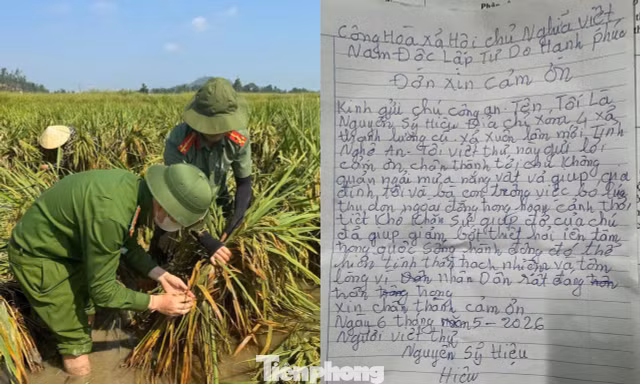 Cộng Hòa xã Hội chủ Nghĩa Việt
Nam Độc Lập Tự Do Hạnh Phúc
Đơn xin cảm ơn
Kính gửi chú công an. Tên, Tôi Là
Nguyễn Sỹ Hiệu Địa chỉ xóm 4 xã
thanh Lương cũ xã xuân Lâm mới Tỉnh
Nghệ An. Tôi viết thư này gửi lời
cảm ơn chân thành tới chú không
quản ngại mưa nắng vất vả giúp gia
đình tôi và bà con trong việc bó lúa
thu dọn ngoài đồng trong hoàn cảnh thời
tiết khó khăn Sự giúp đỡ của chú
đã giúp giảm bớt thiệt hại
hiện tinh thần trách nhiệm và tấm
lòng vì Nhân Dân rất đáng
trân trọng
xin chân thành cảm ơn
Ngày 6 tháng 5-2026
Người viết thư
Nguyễn Sỹ Hiệu
Hiệu
Tienphong